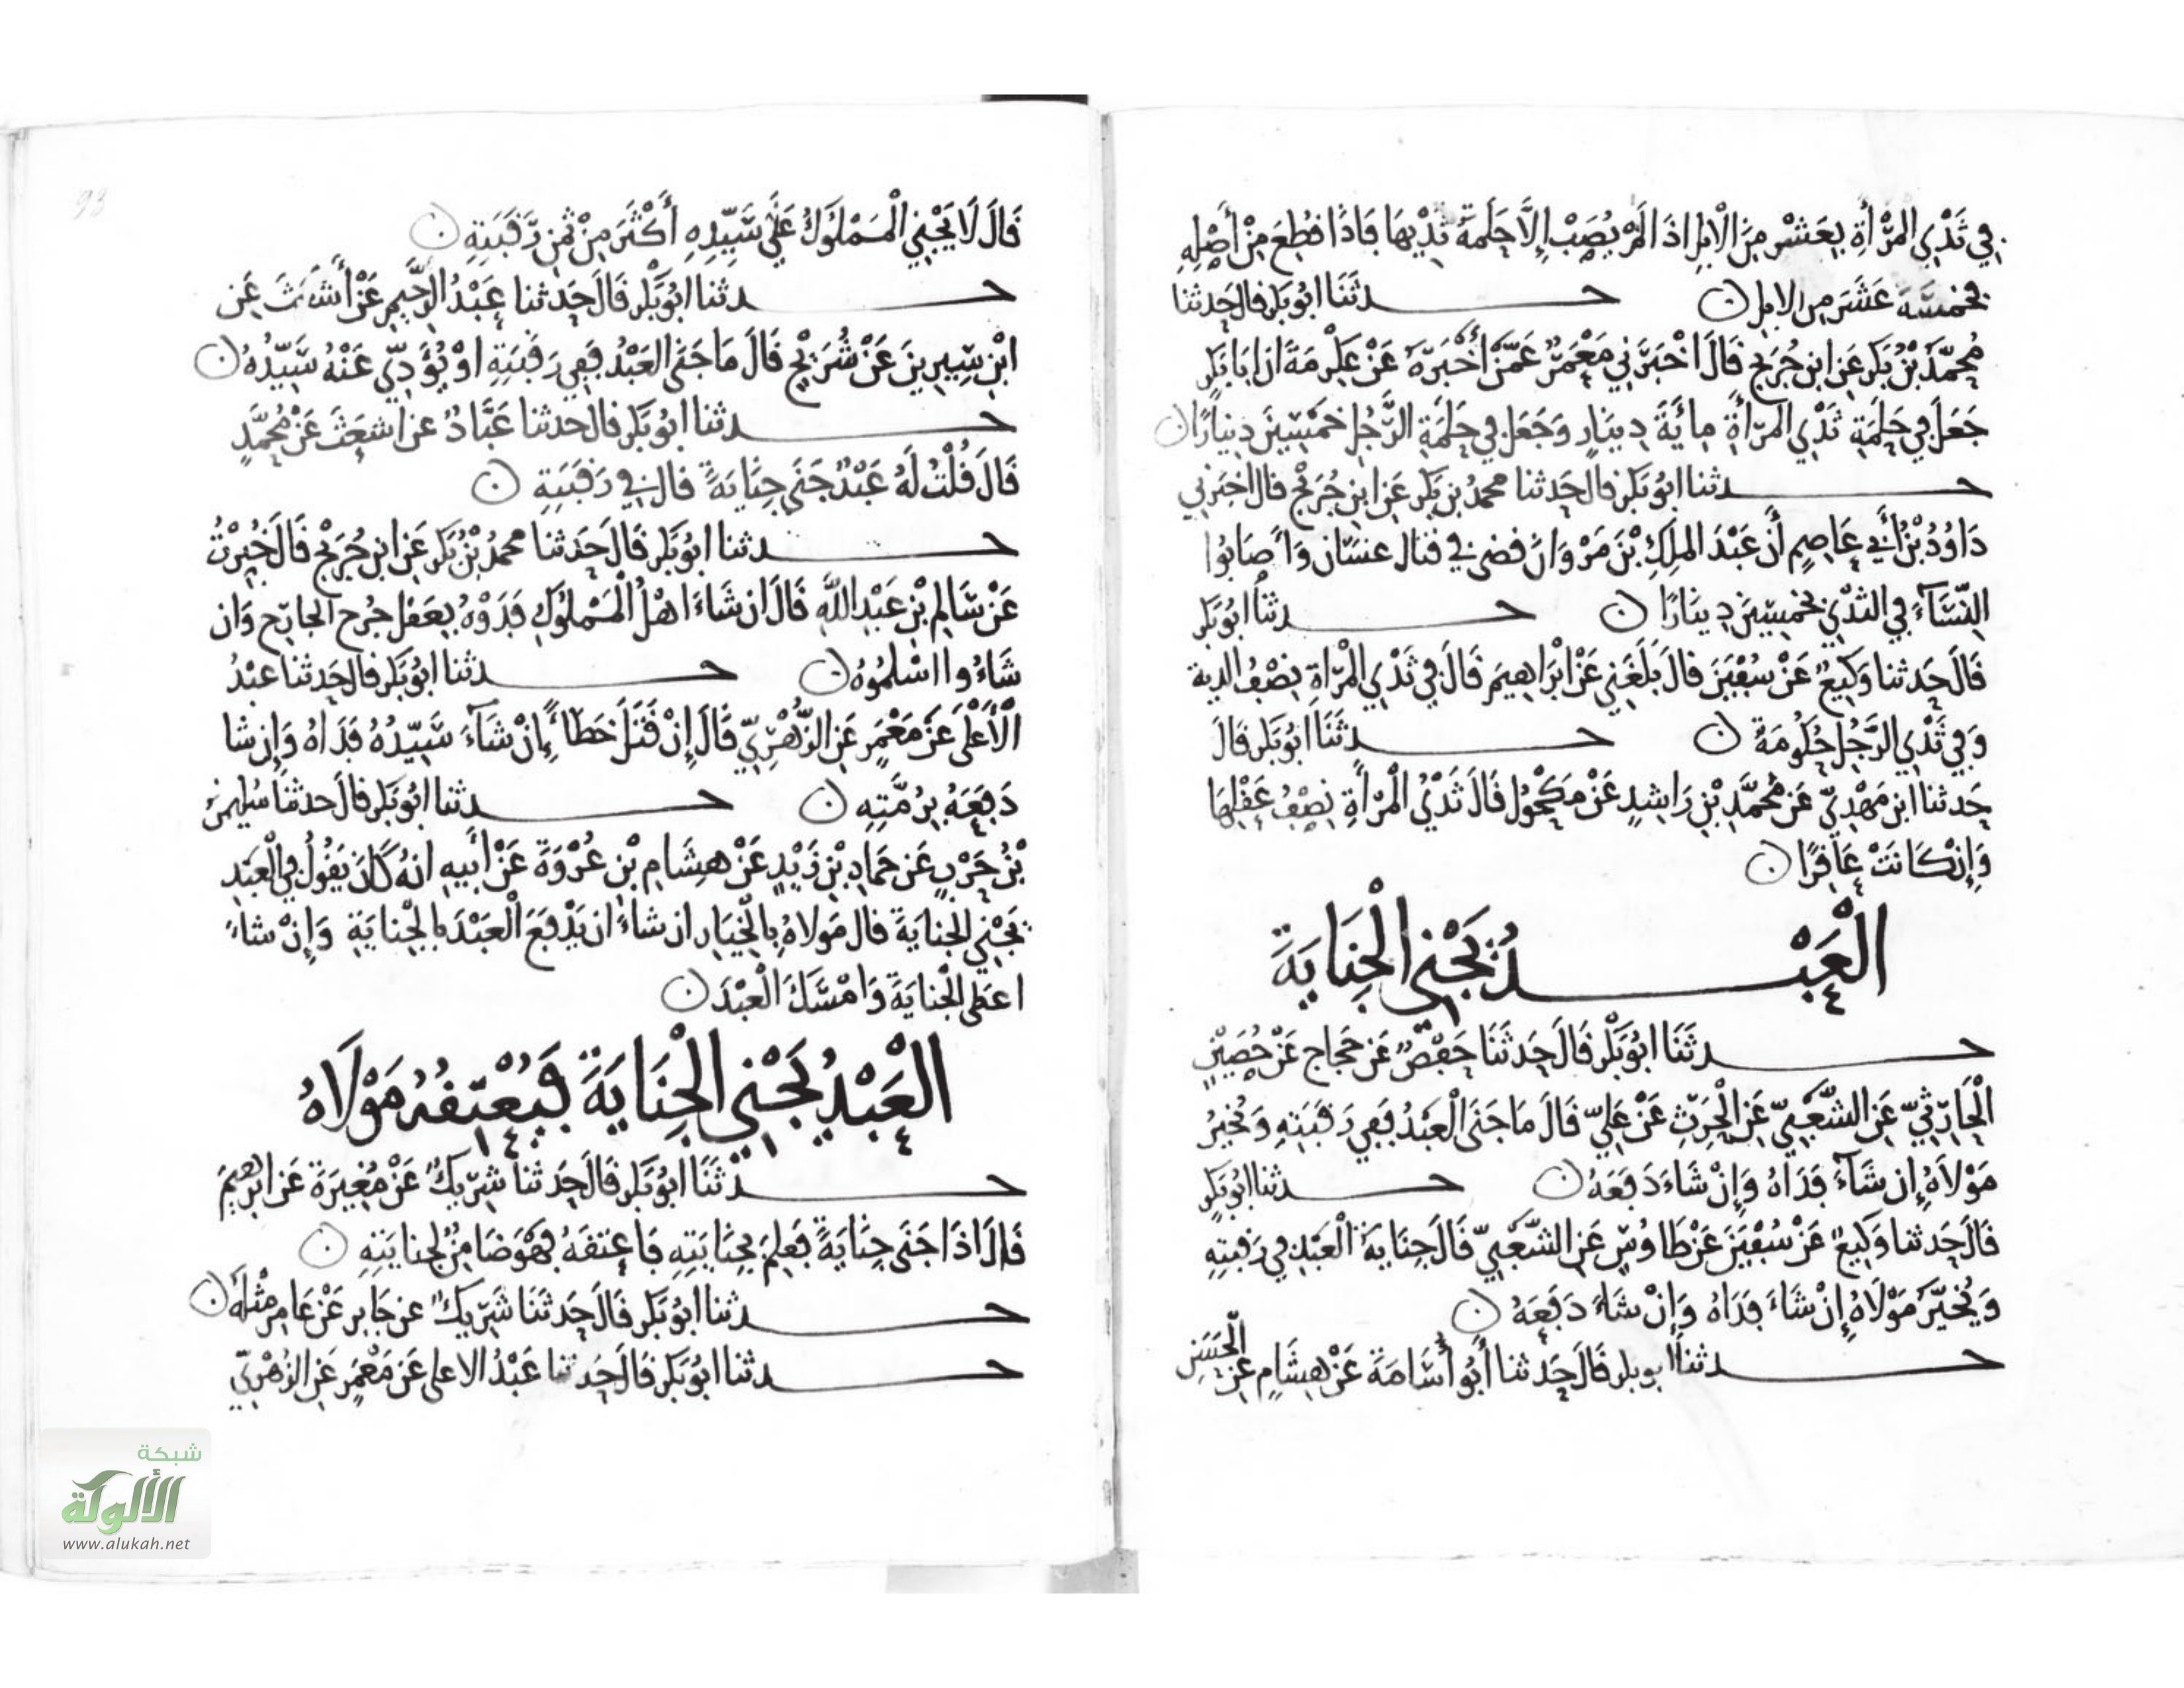 في ثَدْيِ المرْأَةِ بِعَشْرٍ مِنَ الْابِلِ اذَا لَمْ يُصِبْ إِلَّا حَلَمَةَ ثَدْيِهَا فَاذَا قُطِعَ مِنْ أَصْلِهِ
فخمسَةَ عَشَرَ مِن الابِلِ ۝ حدثَنَا ابُو بَكرٍ قال حَدثنا
مُحمَّدُ بْنُ بَكرٍ عَنِ ابنِ جُرَيجٍ قَالَ اخْبَرَنِي مَعْمَرٌ عَمَّنْ أخْبَرَهُ عَنْ عِكْرِمَةَ ان ابَا بَكرٍ
جَعَلَ في حَلَمَةِ ثَدْيِ المرْأةِ مِائَةَ دِينَارٍ وَجَعَلَ في حَلَمَةِ الرَّجُلِ خَمْسِينَ دِينَارًا ۝
حدثنا ابُو بَكرٍ قال حَدثنا محمدُ بن بَكرٍ عَنِ ابنِ جُرَيْجٍ قال اخبَرَنِي
دَاوُدُ بْنُ أَبِي عَاصِمٍ أَنَّ عَبْدَ المَلِكِ بْنَ مَرْوَانَ قضى في قتال غسَّان وَأَصَابُوا
النِّسَآءَ في الثدْيِ بخمسِينَ دِينَارًا ۝ حدثنا ابُو بَكر
قَالَ حَدثنا وَكِيعٌ عَنْ سُفْيَنَ قالَ بَلَغَنِي عَنْ ابْرَاهِيمَ قَالَ في ثَدْيِ الْمَرْأةِ نِصْفُ الدية
وَفي ثَدْيِ الرَّجُلِ حُكُومَةٌ ۝ حدثَنَا ابُو بَكرٍ قَالَ
حَدثنا ابن مَهْدِيٍّ عَن مُحمَّدِ بْنِ رَاشِدٍ عَنْ مَكْحُولٍ قَالَ ثَدْيُ الْمَرْأةِ نِصْفُ عَقْلِهَا
وَإِنْ كَانَتْ عَاقِرًا ۝
الْعَبْدُ يَجْنِي الْجِنَايَةَ
حدثَنَا ابُو بَكْرٍ قَالَ حَدثَنَا حَفْصٌ عَن حَجَاجٍ عَنْ حُصَيْنٍ
الْحَارِثِيِّ عَنِ الشَّعْبِيِّ عَنِ الْحَرِثِ عَنْ عَلِيٍّ قَالَ مَا جَنَى الْعَبْدُ فَفِي رَقَبَتِهِ وَيُخَيَّرُ
مَوْلَاهُ إِن شَآءَ فَدَاهُ وَإِنْ شَاءَ دَفَعَهُ ۝ حدثنا ابُو بَكرٍ
قَالَ حَدثنا وَكِيعٌ عَنْ سُفْيَنَ عَنْ طَاوُسٍ عَنِ الشَّعْبِيِّ قَالَ جِنَايَةُ الْعَبْدِ في رَقَبتِهِ
وَيُخَيَّرُ مَوْلَاهُ إِنْ شَاءَ فَدَاهُ وَإِنْ شَاءَ دَفَعَهُ ۝
حدثنا ابو بكر قَالَ حَدثنا أَبُو أُسَامَةَ عَنْ هِشَامٍ عَنِ الْحَسَنِ
قَالَ لَا يَجْنِي الْمَمْلُوكُ عَلَى سَيِّدِهِ أَكْثَرَ مِنْ ثَمَنِ رَقَبَتِهِ ۝
حدثنا ابُو بَكْرٍ قَالَ حَدثنا عَبْدُ الرَّحِيمِ عَنْ أَشْعَثَ عَنِ
ابْنِ سِيرِينَ عَنْ شُرَيْحٍ قَالَ مَا جَنَى العَبْدُ فَفِي رَقَبَتِهِ اوْ يُؤَدِّي عَنْهُ سَيِّدُهُ ۝
حدثنا ابُو بَكرٍ قال حدثنا عَبَّادٌ عن اشعَثَ عَنْ مُحمَّدٍ
قَالَ قُلْتُ لَهُ عَبْدٌ جَنَى جِنَايَةً قال في رَقَبَتِهِ ۝
حدثنا ابُو بَكرٍ قَالَ حَدثنا محمدُ بْنُ بَكرٍ عَنِ ابنِ جُرَيْجٍ قَالَ خُبِّرْتُ
عَنْ سَالِمِ بْنِ عَبْدِ اللَّهِ قَالَ ان شَاءَ اهْلُ الْمَمْلُوكِ فَدَوْهُ بِعَقل جُرح الجارِح وَان
شَاءُوا اسْلَمُوهُ ۝ حدثنا ابُو بَكر قال حَدثنا عبْدُ
الْأَعْلَى عَنْ مَعْمَرٍ عَنِ الزُّهْرِيِّ قَالَ إِنْ قَتَلَ خَطَاءً إِنْ شَآءَ سَيِّدُهُ فَدَاهُ وَإِن شا
دَفَعَهُ بِرُمَّتِهِ ۝ حدثنا ابُو بَكر قالَ حدثنا سُليمنُ
بْنُ حَرْبٍ عَن حَمَادِ بْنِ زَيْدٍ عَنْ هِشَامِ بْنِ عُرْوَةَ عَنْ أَبِيهِ انهُ كَانَ يَقُولُ في الْعَبْدِ
يَجْنِي الجِنايَةَ قال مَولاهُ بِالْخِيَارِ ان شاءَ ان يَدْفَعَ الْعَبْدَ بِالْجِنايَةِ وَإِنْ شاءَ
اعطى الْجِنايَةَ وَامْسَكَ الْعبْدَ ۝
الْعَبْدُ يَجْنِي الْجِنَايَةَ فَيُعْتِقُهُ مَوْلَاهُ
حدثَنَا ابُو بَكرٍ قَالَ حَدثنا شَرِيكٌ عَنْ مُغِيرَةَ عَن ابرهِيمَ
قَالَ اذَا جَنَى جِنَايَةً فَعَلِمَ بِجِنَايَتِهِ فَاعتقَهُ فَهُوَ ضَامِنٌ لِجِنايَتِهِ ۝
حدثنا ابُو بَكرٍ قَالَ حَدثَنَا شَرِيكٌ عن جَابِرٍ عَنْ عَامِرٍ مِثْلَهُ ۝
حدثنا ابُو بَكر قَالَ حَدثنا عَبْدُ الاعلى عَنْ مَعْمَرٍ عَنِ الزُهْرِيِّ
93
شبكة
الألوكة
www.alukah.net